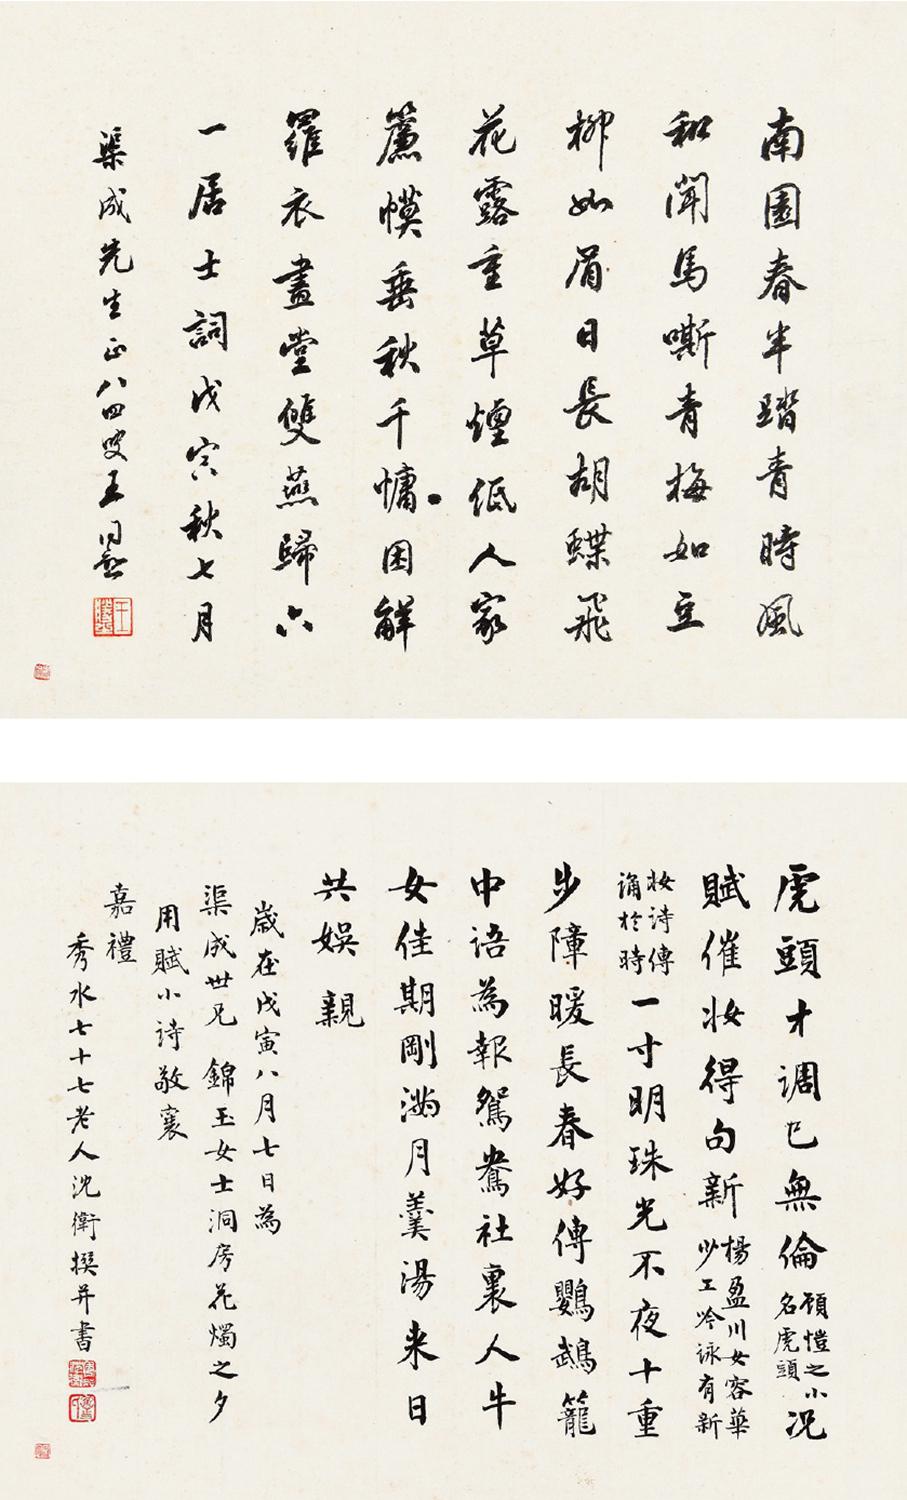 南園春半踏青時風
和聞馬嘶青梅如豆
柳如眉日長胡蝶飛
花露重草煙低人家
簾幙垂秋千慵困解
羅衣畫堂雙燕歸六
一居士詞戊寅秋七月
渠成先生正八四叟王同愈
虎頭才調已無倫顧愷之小名虎頭况
賦催妝得句新楊盈川女容華少工吟詠有新
妝詩傳誦於時一寸明珠光不夜十重
步障暖長春好傳鸚鵡籠
中語為報鴛鴦社裏人牛
女佳期剛滿月羹湯来日
共娛親
歲在戊寅八月七日為
渠成世兄 錦玉女士洞房花燭之夕
用賦小詩敬襄
嘉禮
秀水七十七老人沈衛撰并書